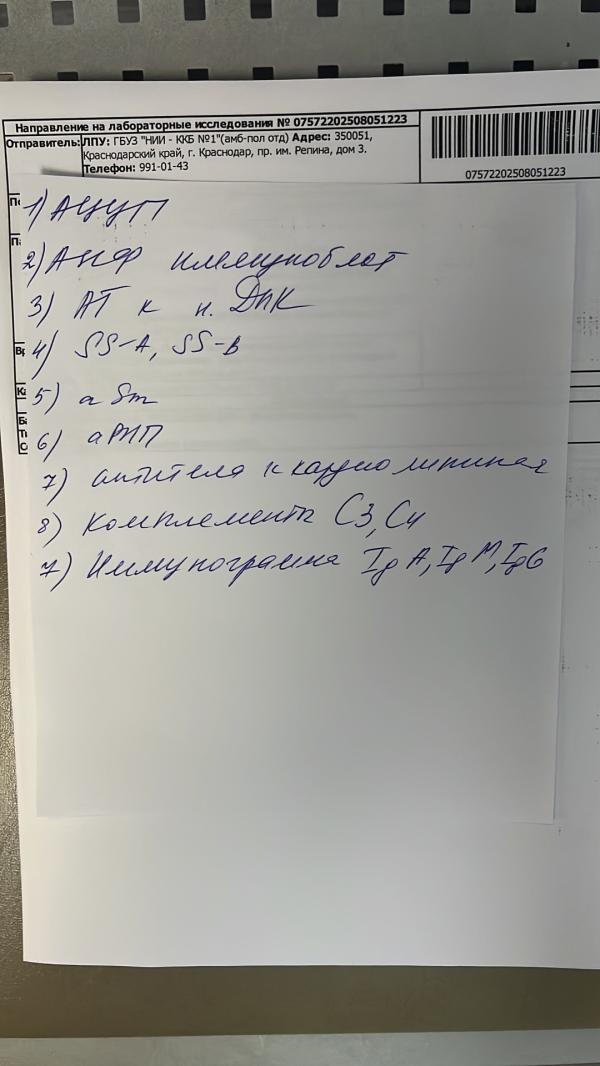 Направление на лабораторные исследования № 07572202508051223
Отправитель: ЛПУ: ГБУЗ "НИИ - ККБ №1"(амб-пол отд) Адрес: 350051,
Краснодарский край, г. Краснодар, пр. им. Репина, дом 3.
Телефон: 991-01-43
07572202508051223
1) АЦЦП
2) АНФ иммуноблот
3) АТ к н. ДНК
4) SS-A, SS-B
5) a Sm
6) аРНП
7) антитела к кардиолипинам
8) Комплемента С3, С4
7) Иммунограмма Ig A, Ig M, Ig G